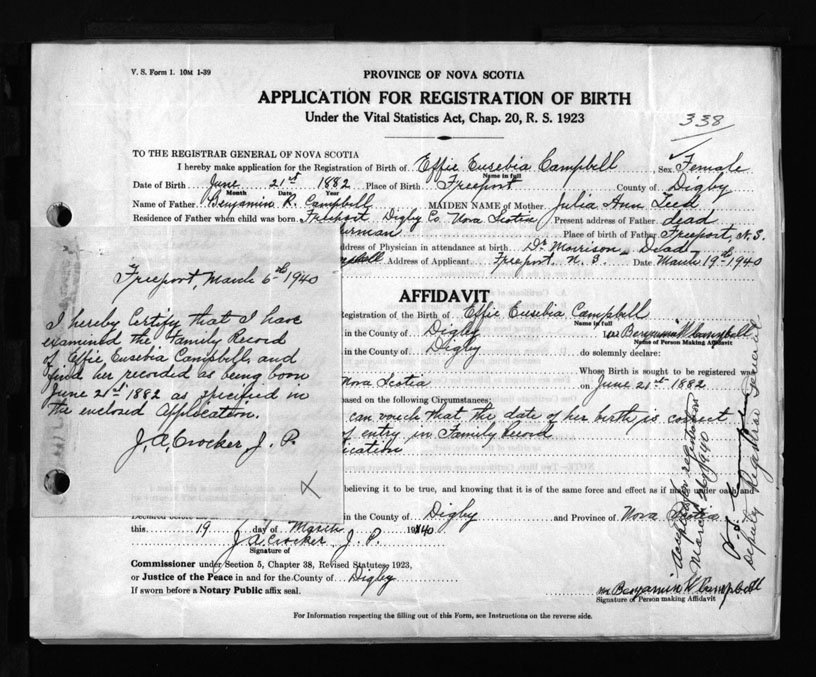 V. S. Form 1. 10M 1-39
PROVINCE OF NOVA SCOTIA
APPLICATION FOR REGISTRATION OF BIRTH
Under the Vital Statistics Act, Chap. 20, R. S. 1923
338
TO THE REGISTRAR GENERAL OF NOVA SCOTIA
I hereby make application for the Registration of Birth of Effie Eusebia Campbell Sex Female
Name in full
Date of Birth June 21st 1882 Place of Birth Freeport County of Digby
Month Date Year
Name of Father Benjamin R. Campbell MAIDEN NAME of Mother Julia Ann
Residence of Father when child was born Freeport Digby Co. Nova Scotia Present address of Father dead
erman Place of birth of Father Freeport, N.S.
address of Physician in attendance at birth Dr Morrison - Dead
Address of Applicant Freeport. N. S. Date March 19th 1940
Freeport, March 6th 1940
I hereby Certify that I have
examined the Family Record
of Effie Eusebia Campbell and
find her recorded as being born
June 21st 1882 as specified in
the enclosed Application.
J. A. Crocker J. P.
X
AFFIDAVIT
Registration of the Birth of Effie Eusebia Campbell
Name in full
in the County of Digby Benjamin W Campbell
Name of Person Making Affidavit
in the County of Digby do solemnly declare:
Whose Birth is sought to be registered was
Nova Scotia on June 21st 1882
based on the following Circumstances:
can vouch that the date of her birth is correct
of entry in Family Record
lication
believing it to be true, and knowing that it is of the same force and effect as if made under oath and
Declared before me in the County of Digby and Province of Nova Scotia
this 19 day of March 1940
J A Crocker J. P.
Signature of
Commissioner under Section 5, Chapter 38, Revised Statutes, 1923,
or Justice of the Peace in and for the County of Digby
If sworn before a Notary Public affix seal.
Benjamin W Campbell
Signature of Person making Affidavit
Accepted for registration
March 1940
Deputy Registrar General
For Information respecting the filling out of this Form, see Instructions on the reverse side.